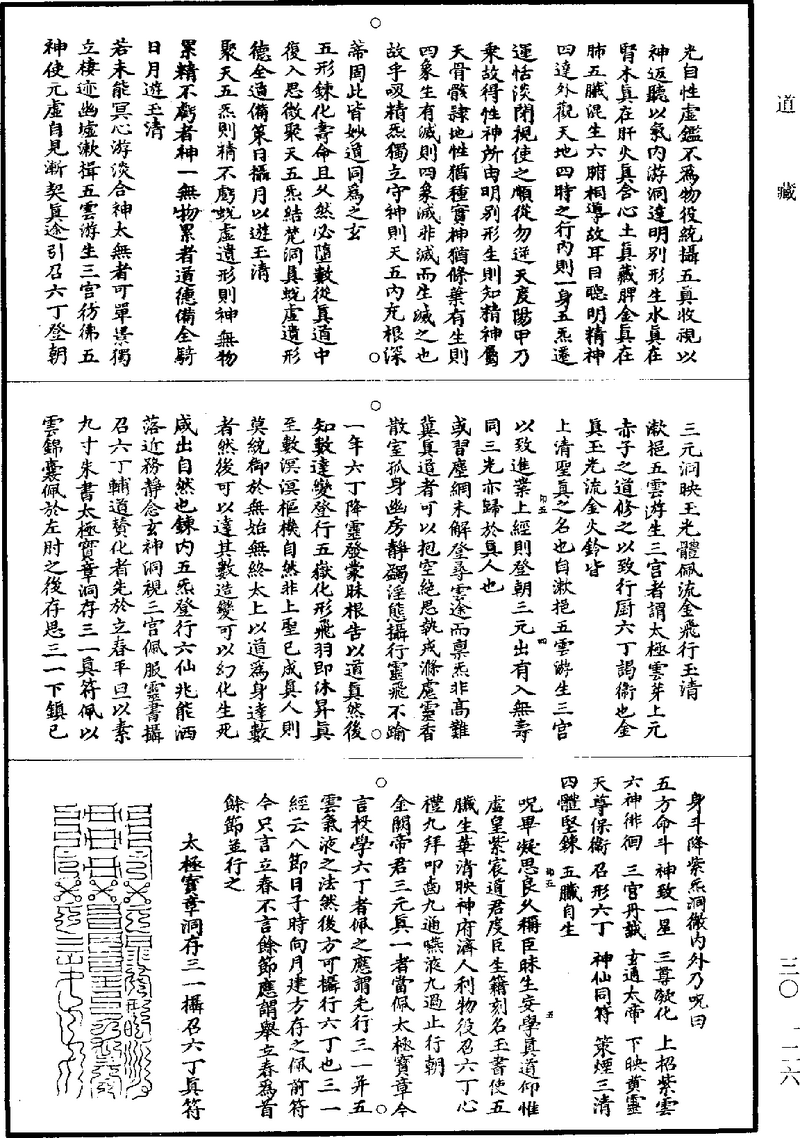 道藏
三〇
一一六
光自性虛鑑不爲物役統攝五真收視以
神返聽以氣內游洞達明別形生水真在
腎木真在肝火真含心土真藏脾金真在
肺五臟混生六腑相導故耳目聰明精神
四達外觀天地四時之行內則一身五炁還
運恬淡閉視使之順從勿逆天度陽甲乃
乘故得性神所由明別形生則知精神屬
天骨骸隸地性猶種實神猶條葉有生則
四象生有滅則四象滅非滅而生滅之也
故乎吸精炁獨立守神則天五內充根深
蒂固此皆妙道同爲之玄
五形鍊化壽命且久然必隨數從真道中
復入思微聚天五炁結梵洞真蛻虛遺形
德全道備策日攝月以遊玉清
聚天五炁則精不虧蛻虛遺形則神無物
累精不虧者神一無物累者道德備全騎
日月遊玉清
若未能冥心游淡合神太無者可單景獨
立棲迹幽墟漱揖五雲游生三宮彷彿五
神使元虛自見漸契真途引召六丁登朝
三元洞映玉光體佩流金飛行玉清
漱挹五雲游生三宮者謂太極雲芽上元
赤子之道修之以致行厨六丁謁衛也金
真玉光流金火鈴皆
上清聖真之名也自漱挹五雲游生三宮
以致進業上經則登朝三元出有入無壽
同三光亦歸於真人也
或習塵網未解登尋雲途而稟炁非高難
冀真道者可以抱空絕思執戒滌慮靈香
散室孤身幽房靜蠲淫態攝行靈飛不踰
一年六丁降靈發蒙昧根告以道真然後
知數達變登行五嶽化形飛羽即沐昇真
至數溟涬樞機自然非上聖已成真人則
莫統御於無始無終太上以道爲身達數
者然後可以達其數造變可以幻化生死
咸出自然也鍊內五炁登行六仙兆能洒
落近務靜念玄神洞視三宮佩服靈書攝
召六丁輔道贊化者先於立春平旦以素
九寸朱書太極寳章洞存三一真符佩以
雲錦囊佩於左肘之後存思三一下鎮己
身斗降紫炁洞徹內外乃呪曰
五方命斗 神致一星 三尊凝化 上招紫雲
六神徘徊 三宮丹誠 玄通太帝 下映黄靈
天尊保衛 召形六丁 神仙同符 策煙三清
四體堅鍊 五臟自生
呪畢凝思良久稱臣昧生妄學真道仰惟
虛皇紫宸道君度臣生籍刻名玉書使五
臟生華清映神府濟人利物役召六丁心
禮九拜叩齒九通嚥液九過止行朝
金闕帝君三元真一者當佩太極寳章今
言投學六丁者佩之應謂先行三一并五
雲氣液之法然後方可攝行六丁也三一
經云八節日子時向月建方存之佩前符
今只言立春不言餘節應謂舉立春爲首
餘節並行之
太極寳章洞存三一攝召六丁真符